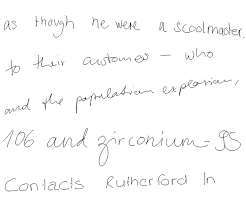 as though he were a scoolmaster.
to their customers - who
and the population explosion,
106 and zirconium-95
Contacts Rutherford In